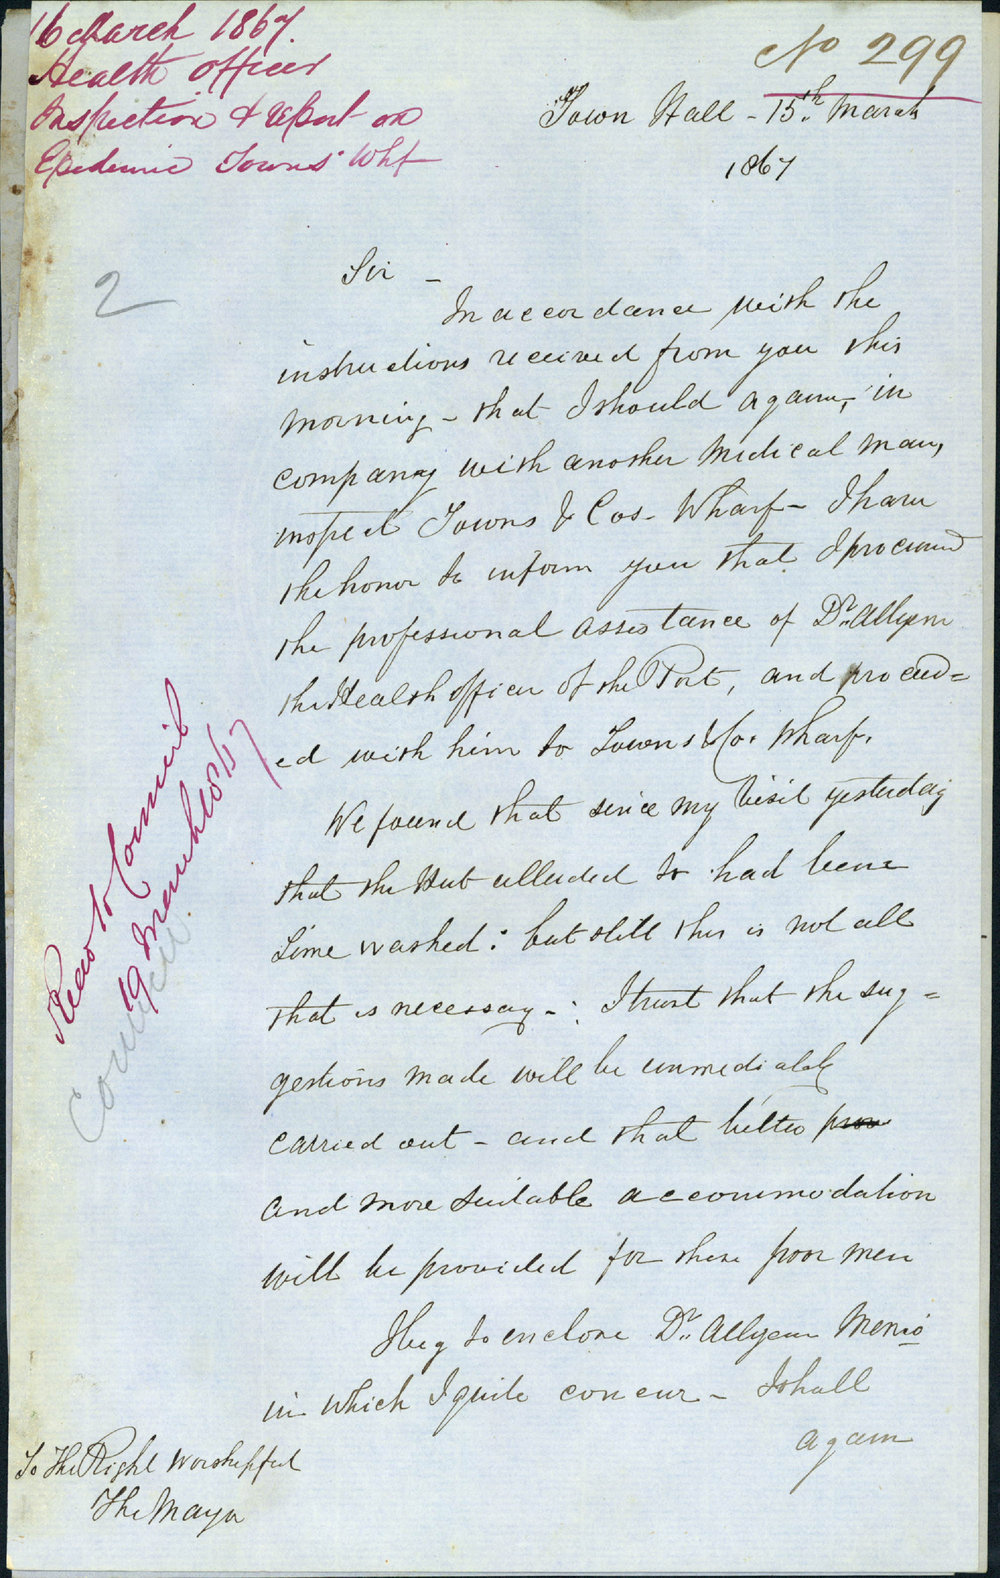 16 March 1867.
Health Officer
Inspection & Report on
Epidemic Towns' Whf
No 299
Town Hall - 15th March
1867
2
Sir -
In accordance with the
instructions received from you this
morning - that I should again, in
company with another Medical Man,
inspect Towns & Cos. Wharf - I have
the honor to inform you that I procured
the professional assistance of Dr. Alleyne
the Health officer of the Port, and proceed=
ed with him to Towns & Co. Wharf.
We found that since my visit yesterday
that the Hut alluded to had been
Lime washed: but still this is not all
that is necessary -: I trust that the sug=
gestions made will be immediately
carried out - and that better
and more suitable accommodation
will be provided for these poor men
I beg to enclose Dr. Alleyne Memo
in which I quite concur - I shall
again
To The Right Worshipful
The Mayor
Read to Council
19 March 1867
Council